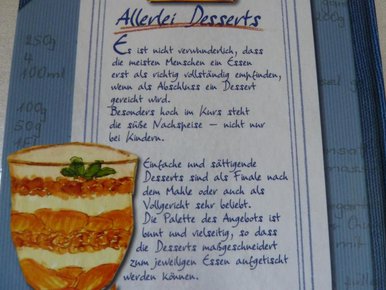 Allerlei Desserts
Es ist nicht verwunderlich, dass
die meisten Menschen ein Essen
erst als richtig vollständig empfinden,
wenn als Abschluss ein Dessert
gereicht wird.
Besonders hoch im Kurs steht
die süße Nachspeise – nicht nur
bei Kindern.
Einfache und sättigende
Desserts sind als Finale nach
dem Mahle oder auch als
Vollgericht sehr beliebt.
Die Palette des Angebots ist
bunt und vielseitig, so dass
die Desserts maßgeschneidert
zum jeweiligen Essen aufgetischt
werden können.
250g
4
100ml
100g
50g